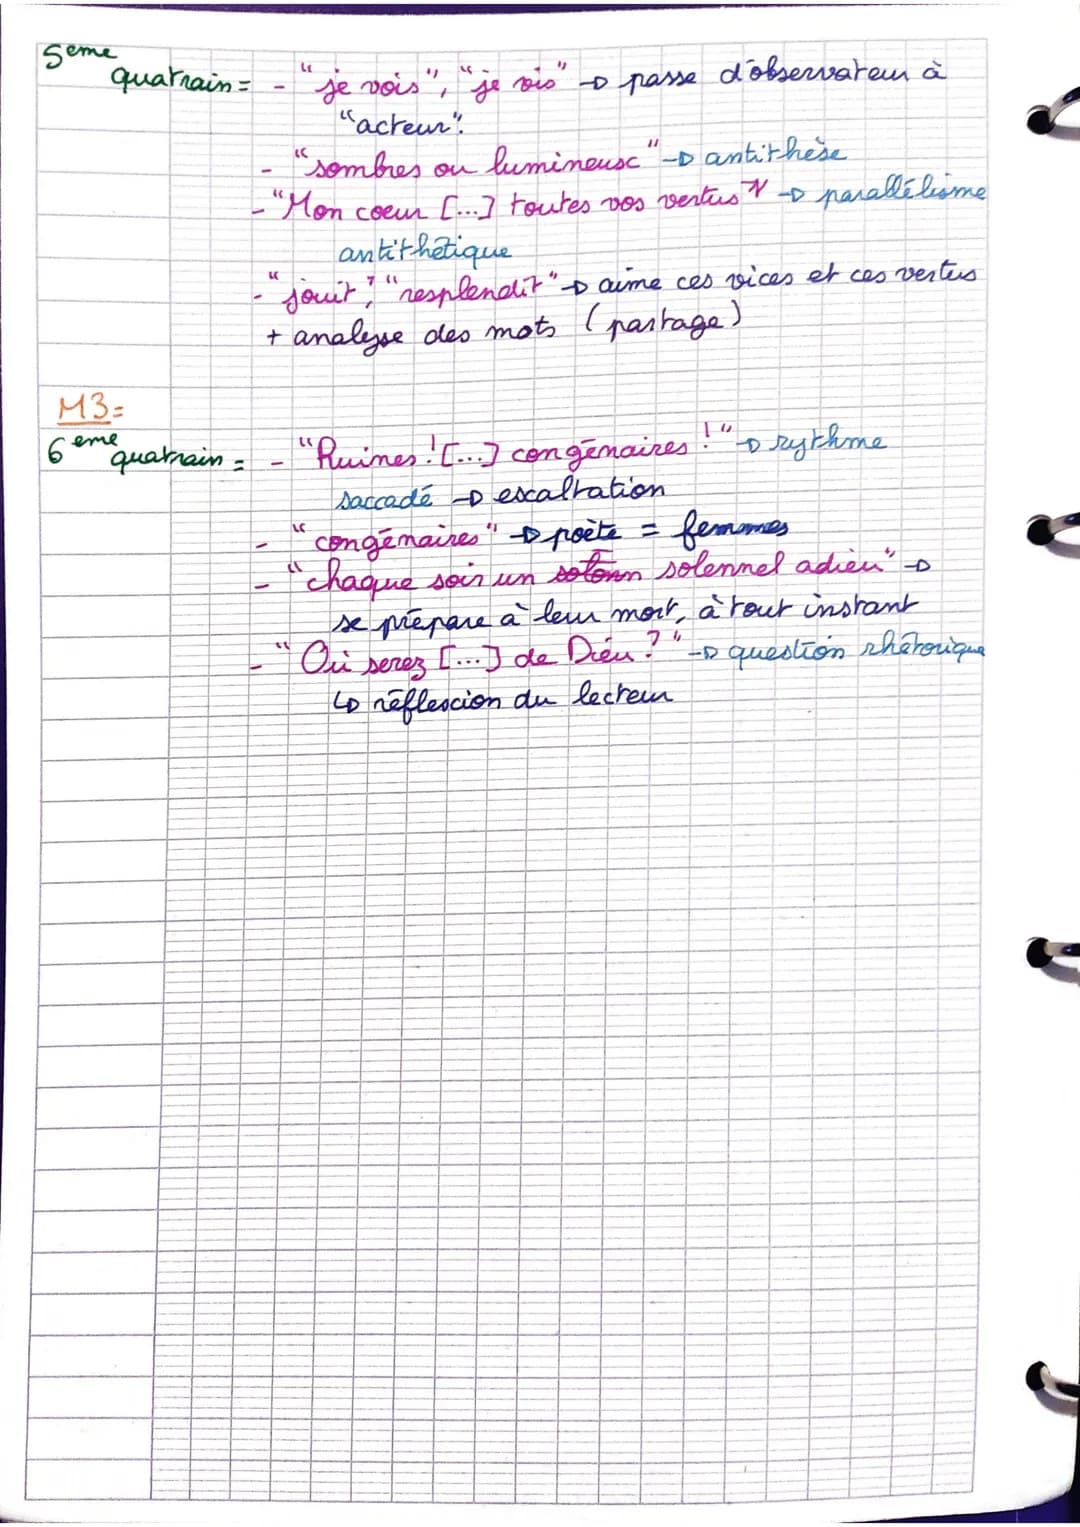 5eme
quatrain = - "je vois", "je vis" → passe d'observateur à
"acteur".
- "sombres ou lumineux" → antithèse
- "Mon coeur [...] toutes vos vertus" → parallélisme
antithétique
- "jouit", "resplendit" → aime ces vices et ces vertus
+ analyse des mots (partage)
M3=
6eme
quatrain = - "Ruines ! [...] congénaires !" → rythme
saccadé → escaltation
- "congénaires" → poète = femmes
- "chaque soir un solenn solennel adieu" →
se prépare à leur mort, à tout instant
- "Où serez [...] de Dieu ?" → question rhétorique
↳ réflexcion du lecteur